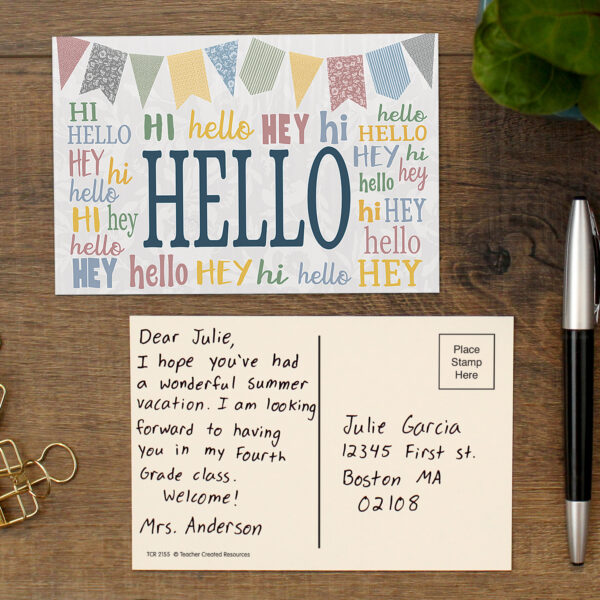 HI HELLO HI hello HEY hi hello HELLO
HEY hi HELLO HEY hi
hello hello hey
HI hey hi HEY
hello hello
HEY hello HEY hi hello HEY
Dear Julie,
I hope you've had
a wonderful summer
vacation. I am looking
forward to having
you in my Fourth
Grade class.
Welcome!
Mrs. Anderson
TCR 2155 © Teacher Created Resources
Place
Stamp
Here
Julie Garcia
12345 First st.
Boston MA
02108